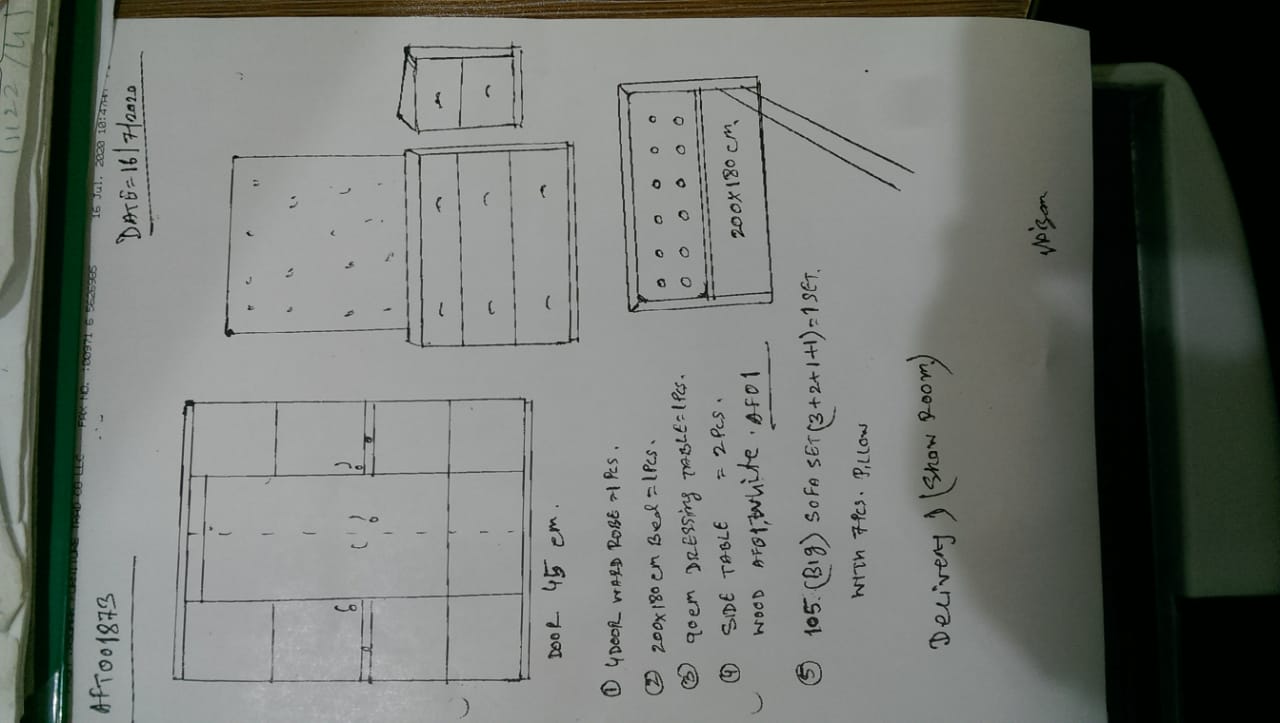 1122/4
FURNITURE TRAD CO LLC FAX NO. :00971 6 5626985 16 Jul. 2020 10:47AM
AFT001873
DATE=16/7/2020
DOOR 45 cm.
① 4DOOR WARD ROBE =1 PCS.
② 200x180cm Bed =1PCS.
③ 90cm DRESSING TABLE=1PCS.
④ SIDE TABLE = 2PCS.
WOOD AF01, White. AF01
200X180 CM.
⑤ 105. (Big) SOFA SET(3+2+1+1)=1SET.
WITH 7PCS. PILLOW
Delivery) (Show Room)